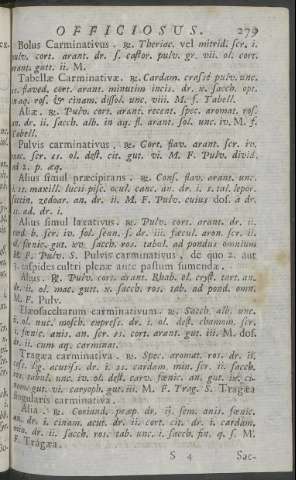 OFFICIOSUS. 279
Bolus Carminativus. ℞. Theriac. vel mitrid. scr. i.
pulv. cort. arant. dr. s. castor. pulv. gr. vii. ol. cort.
arant. gutt. ii. M.
Tabellæ Carminativæ. ℞. Cardam. crassè pulv. unc.
s. flaved. cort. arant. minutim incis. dr. x. sacch. opt.
in aq. ros. & cinam. dissol. unc. viii. M. f. Tabell.
Aliæ. ℞. Pulv. cort. arant. recent. spec. aromat. ros.
an. dr. ii. sacch. alb. in aq. fl. arant. sol. unc. iv. M. f.
Tabell.
Pulvis carminativus. ℞. Cort. flav. arant. scr. iv.
nuc. scr. ss. ol. dest. cit. gut. vi. M. F. Pulv. divid.
in 2. p. æq.
Alius simul præcipitans. ℞. Cons. flav. arant. unc.
i. ss. maxill. lucii pisc. ocul. canc. an. dr. i. s. tal. lepor.
lutin. zedoar. an. dr. ii. M. F. Pulv. cuius dos. à dr.
s. ad. dr. i.
Alius simul laxativus. ℞. Pulv. cort. arant. dr. ii.
rad. b. scr. iv. fol. sen. s. dr. iii. fæcul. aron scr. ii.
ol. fœnic. gut. xv. sacch. ros. tabul. ad pondus omnium
M. F. Pulv. S. Pulvis carminativus, de quo 2. aut
3. cuspides cultri plenæ ante pastum sumendæ.
Alius. ℞. Pulv. cort. arant. Rhab. el. cryst. tart. an.
ii. ol. mac. gutt. x. sacch. ros. tab. ad pond. omn.
M. F. Pulv.
Elæosaccharum carminativum. ℞. Sacch. alb. unc.
i. ol. nuc. mosch. express. dr. i. ol. dest. chamom. scr.
i. fœnic. anis. an. scr. ss. cort. arant. gut. iii. M. dos.
ii. cum aq. carminat.
Tragæa carminativa. ℞. Spec. aromat. ros. dr. ii.
dr. i. ss. cardam. min. scr. ii. sacch.
ros. tabul. unc. iv. ol. dest. carv. fœnic. an. gut. iv. ci-
nam. gut. vi. caryoph. gut. iii. M. F. Trag. S. Tragæa
singularis carminativa.
Alia. ℞. Coriand. præp. dr. ii. sem. anis. fœnic.
an. dr. i. cinam. acut. dr. ii. cort. cit. dr. i. cardam.
min. dr. ii. sacch. ros. tab. unc. i. sacch. fin. q. s. M.
F. Tragæa.
S 4 Sac-